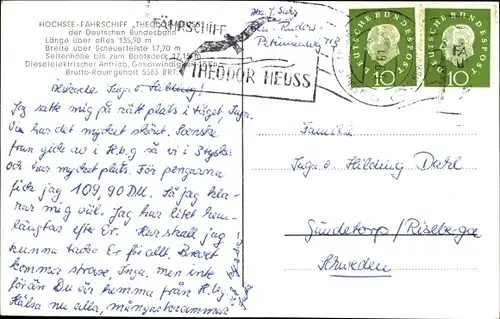 HOCHSEE-FÄHRSCHIFF „THEO
der Deutschen Bundesbahn
Länge über alles 135,90 m
Breite über Scheuerleiste 17,70 m
Seitenhöhe bis zum Bootsdeck 17,15 m
Dieselelektrischer Antrieb, Geschwindigkeit
Brutto-Raumgehalt 5583 BRT
FÄHRSCHIFF
THEODOR HEUSS
DEUTSCHE BUNDESPOST
10
DEUTSCHE BUNDESPOST
10
Älskade Inga o. Hilding!
Jag satte mig på rätt plats i tåget, Inga.
Vi har det mycket skönt. Svenska
och har mycket plats. För pengarna
fick jag 109,90 DM. Så jag kla-
rar mig väl. Jag har litet hem-
längtar efter Er. Hur skall jag
kunna tacka Er för allt. Brevet
kommer strax, Inga, men inte
förrän Du är hemma från H.bg.
Hälsa nu alla, många kramar
Familie
Inga o. Hilding Dahl
Gündetorp/Riseberga
Schweden